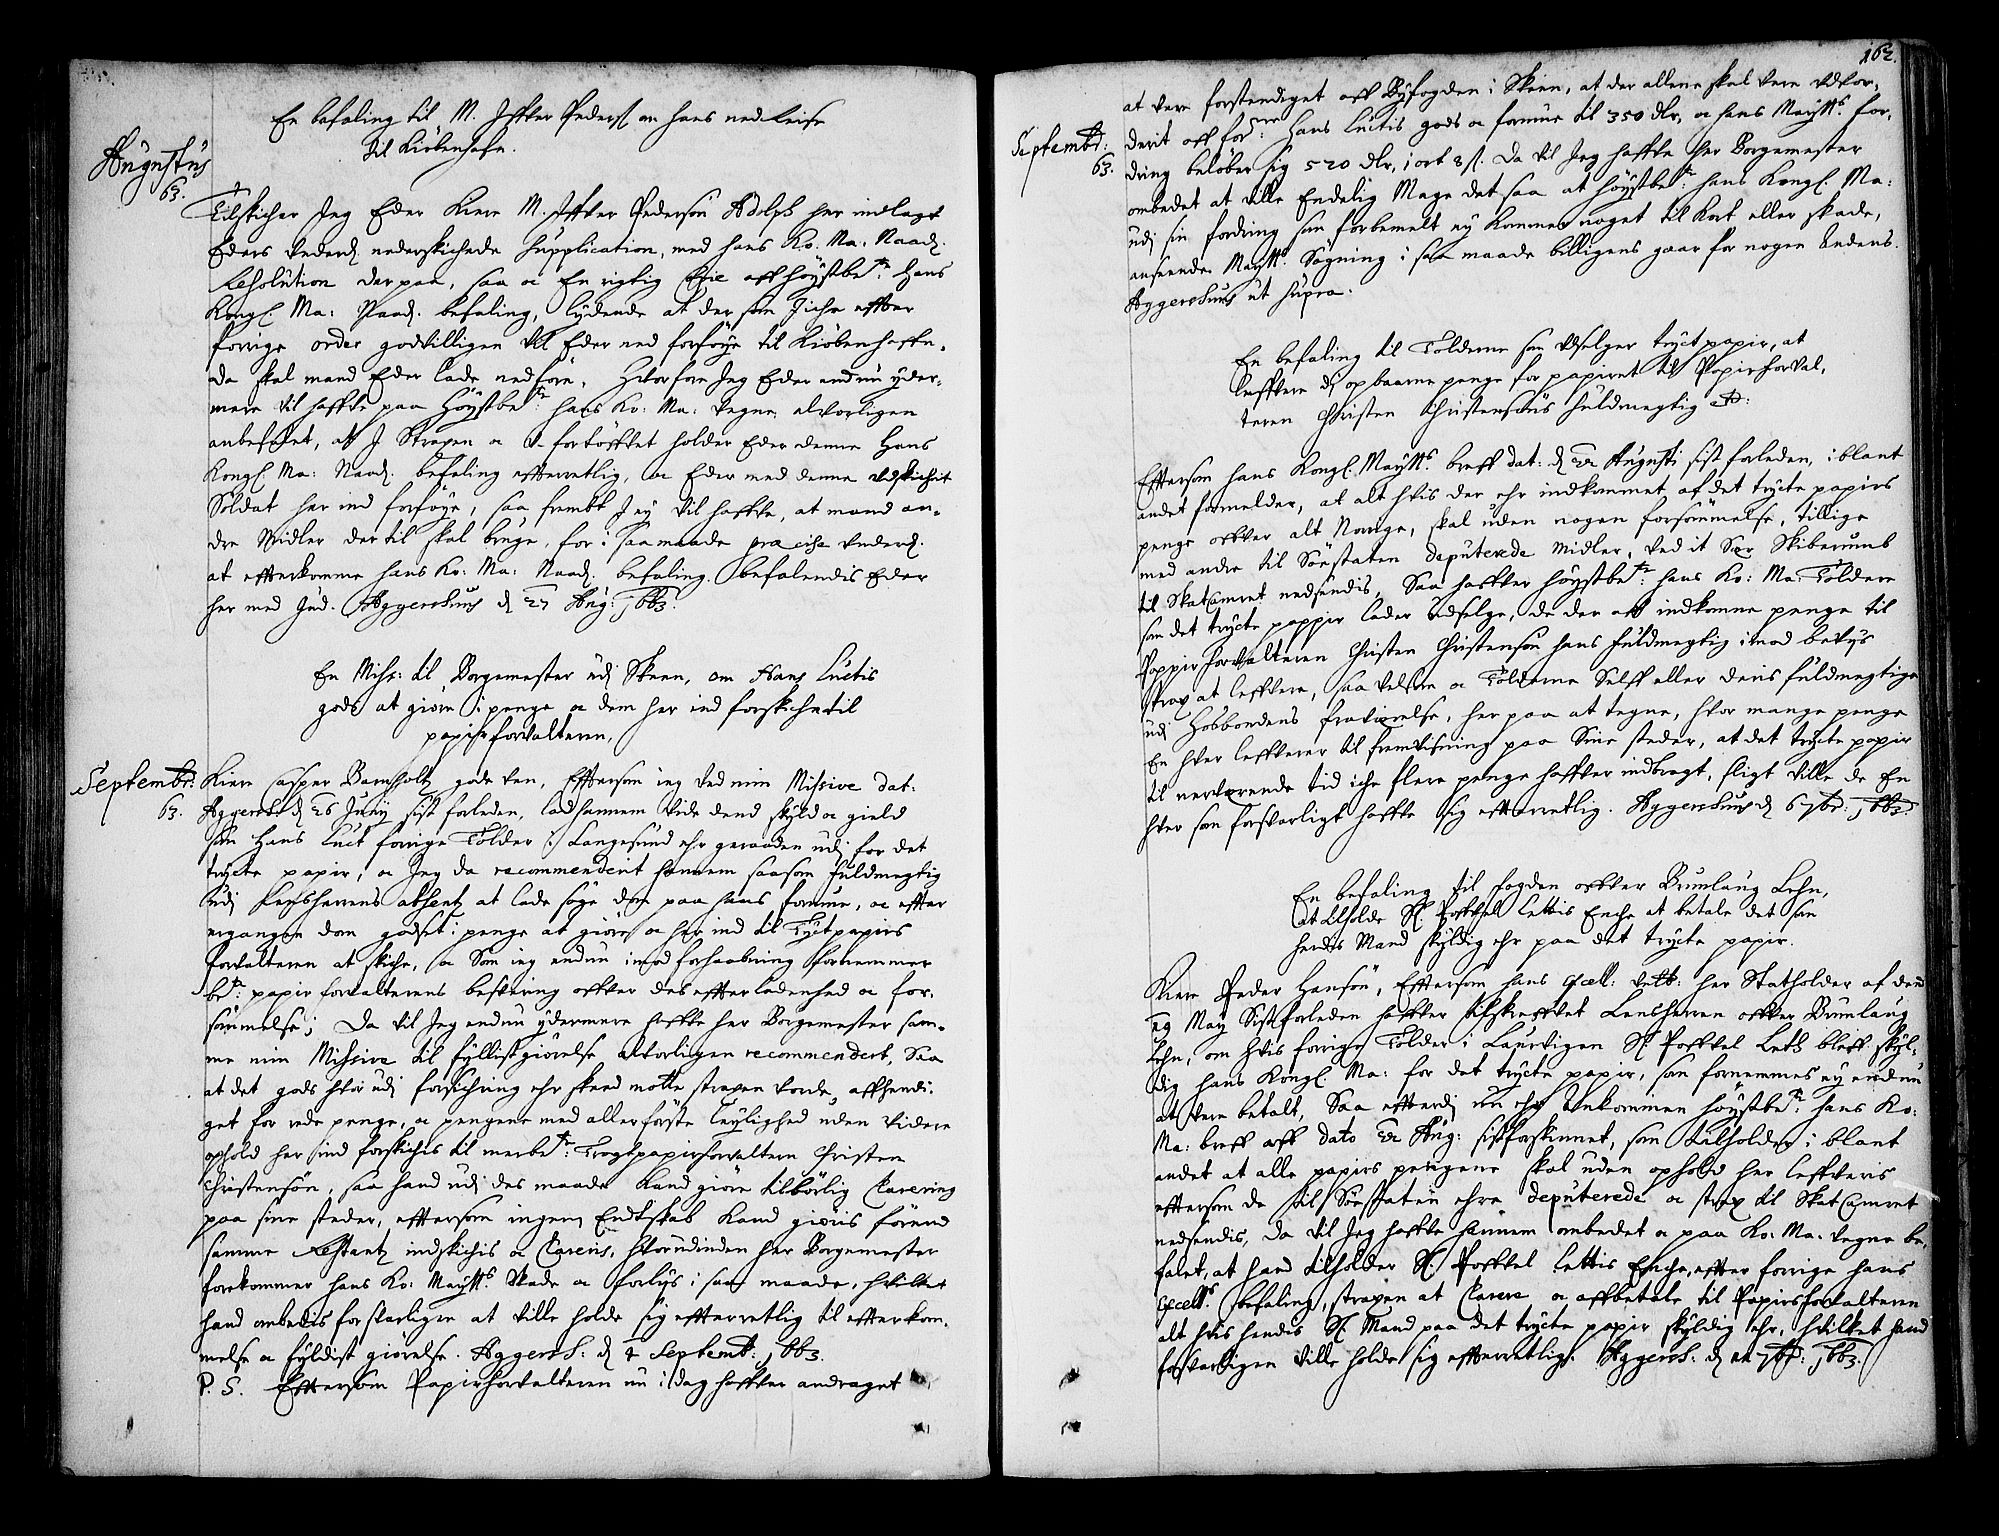 En befaling til M. Iffver Peders: an hans ned Reise
til Kiøbenhafn.
Augustus
63.
Tilskicher Jeg Eder Kiere M. Iffver Pedersøn Adolph her indlagt
Eders Underd. nederskichede Supplication, med hans Ko. Ma: Naad.
Resolution der paa, saa oc En rigtig Copie aff høystbete: hans
Kongl. Ma: Naad. befaling, lydende at der som I iche effter
forrige order godvilligen vil Eder ned forføye til Kiøbenhaffn,
da skal mand Eder lade nedføre, Hvorfore Jeg Eder endnu yder-
mere vil haffve paa Høystbete: hans Ko: Ma: vegne, alvorligen
anbefalet, att I Straxen oc u-fortøffvet holder Eder denne Hans
Kongl. Ma: Naad. befaling effterretlig, oc Eder med denne udskichit
Soldat her ind forføye, saa fremt I ey vil haffve, at mand an-
dre Midler der til skal bruge, for i saa maade præcise underd.
at effterkomme hans Ko: Ma: Naad. befaling. befalendis Eder
her med Gud. Aggershuus d. 27 Aug: 1663.
En Miss: til Borgemester udj Skeen, om Hans Luctis
gods at giøre i penge oc dem her ind forskiche til
papir forvalteren.
Septembr:
63.
Kiere Casper Barnholtz gode ven, Effterson ieg ved min Missive dat:
Aggersh: d. 26 Junij sist forleden, lod hannem vide dend skyld oc gield
som Hans Luct forrige Tolder i Langesund ehr geraaden udj for det
tryckte papir, oc Jeg da recommenderit hannem saasom fuldmegtig
udj Lensherrens absentz at lade søge dom paa hans formue, oc effter
ergangen dom godset i penge at giøre oc her ind til Tryctpapirs
forvalteren at skiche, oc Som ieg endnu imod forhaabning fornemmer
bete: papir forvalterens besvering offver des effterladenhed oc for-
sømmelse; Da vil Jeg endnu ydermere haffve her Borgemester sam-
me min Missive til fyllistgiørelse alvorligen recommendert, Saa
at det gods hvor udj forsichring ehr skeed motte straxen vorde affhendi-
get for rede penge, oc pengene med aller første Leylighed uden videre
ophold her ind forskichis til merbete: Tryctpapirforvaltern Christen
Christensøn, saa hand udj des maade kand giøre tilbørlig Clarering
paa sine steder, efftersom ingen Endskab kand giøris førend
samme Restantz indskichis oc Clareris, hvorudinden her Borgemester
forekommer hans Ko: Maytts. Skade oc forlys i saa maade, hvilket
hand ombedis forsvarligen at ville holde sig effterretlig til efterkom-
melse oc fyldist giørelse. Aggersh: d. 4 Septemb: 1663.
P. S. Efftersom Papirforvalteren nu i dag haffver andraget
162.
at vere forstendiget aff Byfogden i Skeen, at der allene skal vere udfor-
Septembr:
63.
derit aff forne: Hans Luctis gods oc formue til 350 dlr, oc hans Maytts. for-
dring beløber sig 520 dlr, i ort 8 s. Da vil Jeg haffve her Borgemester
ombedet at ville Endelig Mage det saa at høystbete: hans Kongl. Ma:
udj sin fordring som forbemelt ey kommer noget til kort eller skade,
anseende Maytts. Søgning i saa maade billigens gaar for nogen Andens.
Aggershuus ut supra.
En befaling til Tolderne som udselger tryct papir, at
leffvere de opbaarne penge for papiret til Papirforval-
teren Christen Christensøns fuldmegtig etc:
Efftersom hans Kongl. Maytts. breff dat: d. 22 Augusti sist forleden, iblant
andet formelder, at alt hvis der ehr indkommet af det tryckte papirs
penge offver alt Norge, skal uden nogen forsømmelse, tillige
med andre til Søestaten deputerede Midler, ved it Sør Skiberums
til Skatcamret nedsendis, Saa haffver høystbete: hans Ko: Ma: Toldere
som det tryckte pappir lader udselge, de der aff indkomne penge til
Pappirforvalteren Christen Christensøn hans fuldmegtig imod beviis
strax at leffvere, saa velsom oc Tolderne Selff eller deris fuldmegtige
udj Hosbondens fraværelse, her paa at tegne, hvor mange penge
En hver leffverer til fremvisning paa Sine steder, at det tryckte papir
til nerværende tid iche flere penge haffver indbragt, sligt ville de En
hver som forsvarligt haffve sig effterretlig. Aggershuus d. 6 7br: 1663.
En befaling til fogden offver Brunlaug Lehn,
at tilholde Sl. Poffvel Lettis Enche at betale det som
hendis Mand skyldig ehr paa det tryckte papir.
Kiere Peder Hansøn, Efftersom hans Excell: velb: her Statholder af dend
29 May Sistforleden haffver tilskreffvet Lensherren offver Brunlaug
Lehn, om hvis forrige Tolder i Laurvigen Sl. Poffvel Leth bleff skyl-
dig hans Kongl. Ma: for det tryckte papir, som fornemmes ey endnu
at vere betalt, Saa effterdj nu ehr Ankommen høystbete: hans Ko:
Ma: breff aff dato 22 Aug: sistforskinnet, som tilholder i blant
andet at alle papirs pengene skal uden ophold her leffveris
effterson de til Søestaten ehre deputerede oc strax til Skatcamret
nedsendis, da vil Jeg haffve hannem ombedet oc paa Ko: Ma: vegne be-
falet, at hand tilholder Sl. Poffvel Lettis Enche, effter forrige hans
Excells. befaling, straxen at Clarere oc affbetale til Papirsforvalteren
alt hvis hendis Sl. Mand paa det tryckte papir skyldig ehr, hvilket hand
forsvarligen ville holde sig effterretlig. Aggersh: d. 7br: 1663.